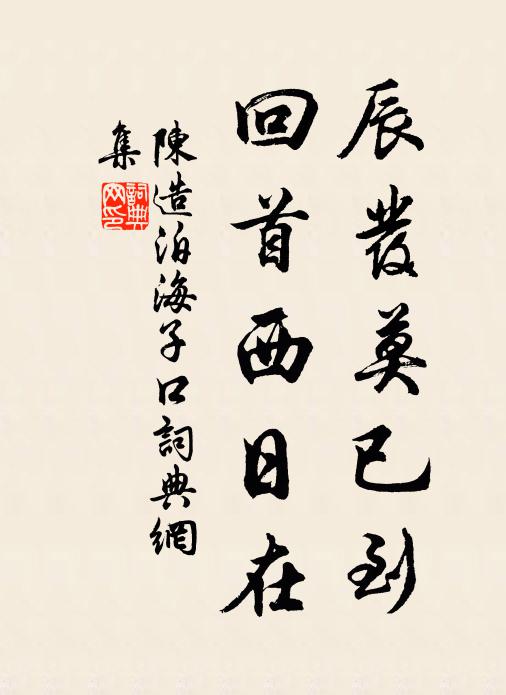 辰發莫已到
回首西日在
陳造泊海子口詞典網
集
詞典网印